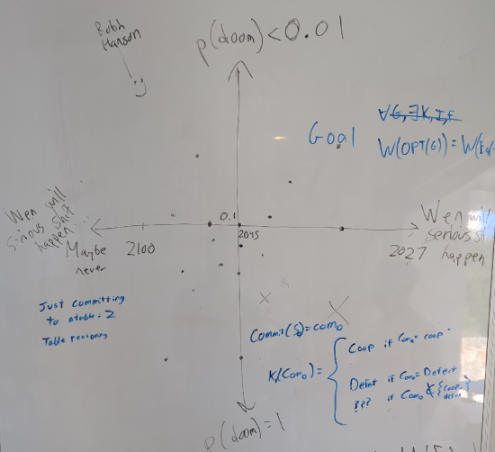 Robin
Hanson
p(doom) < 0.01
Goal
W(OPT(G)) =
Wen will
serious shit
happen
Maybe
never
2100
0.1
2045
Wen will
serious s
happen
2027
Just committing
to a table: 2
Table
Commit(S)=com₀
K(Com₀) =
Coop if Com₀ = coop
Defect if Com₀ = Defect
??? if Com₀ ∉ {coop,
p(doom) = 1